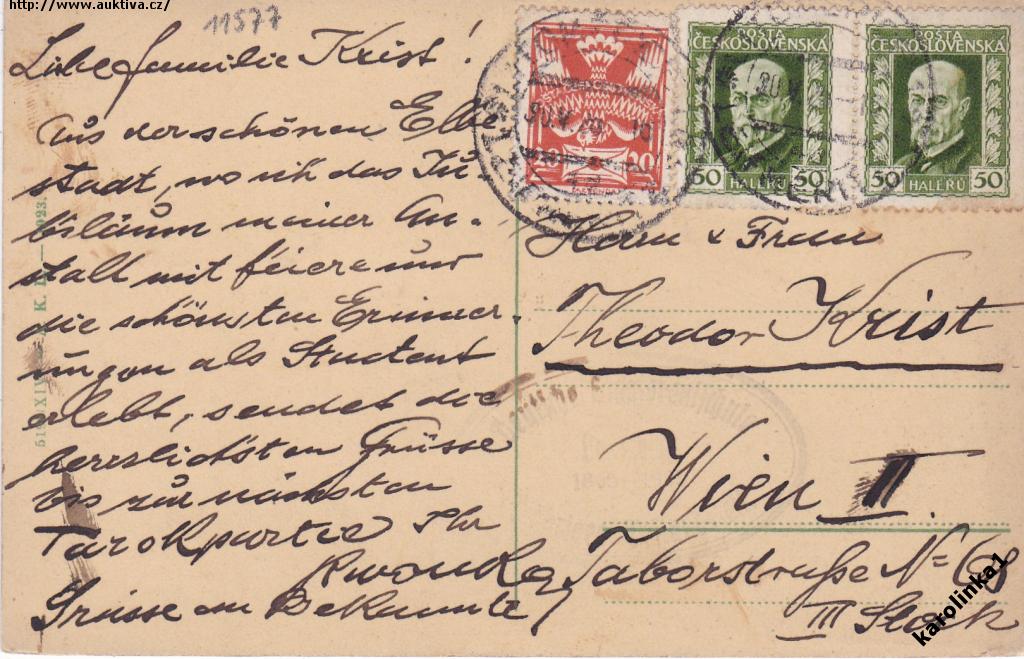 http://www.auktiva.cz/
11577
Liebe familie Krist!
Aus der schönen Elbe
stadt, wo ich das Ju
biläum meiner An-
stalt mit feiere und
die schönsten Erinner-
ungen als Student
erlebt, sendet die
herzlichsten Grüsse
bis zur nächsten
Tarokpartie Ihr
Grüsse an Bekannte
K. D. 1923.
POŠTA
ČESKOSLOVENSKÁ
50 HALÉŘŮ 50
POŠTA
ČESKOSLOVENSKÁ
50 HALÉŘŮ 50
20
Herrn & Frau
Theodor Krist
Wien II.
Taborstraße No 68
III Stock
karolinka1